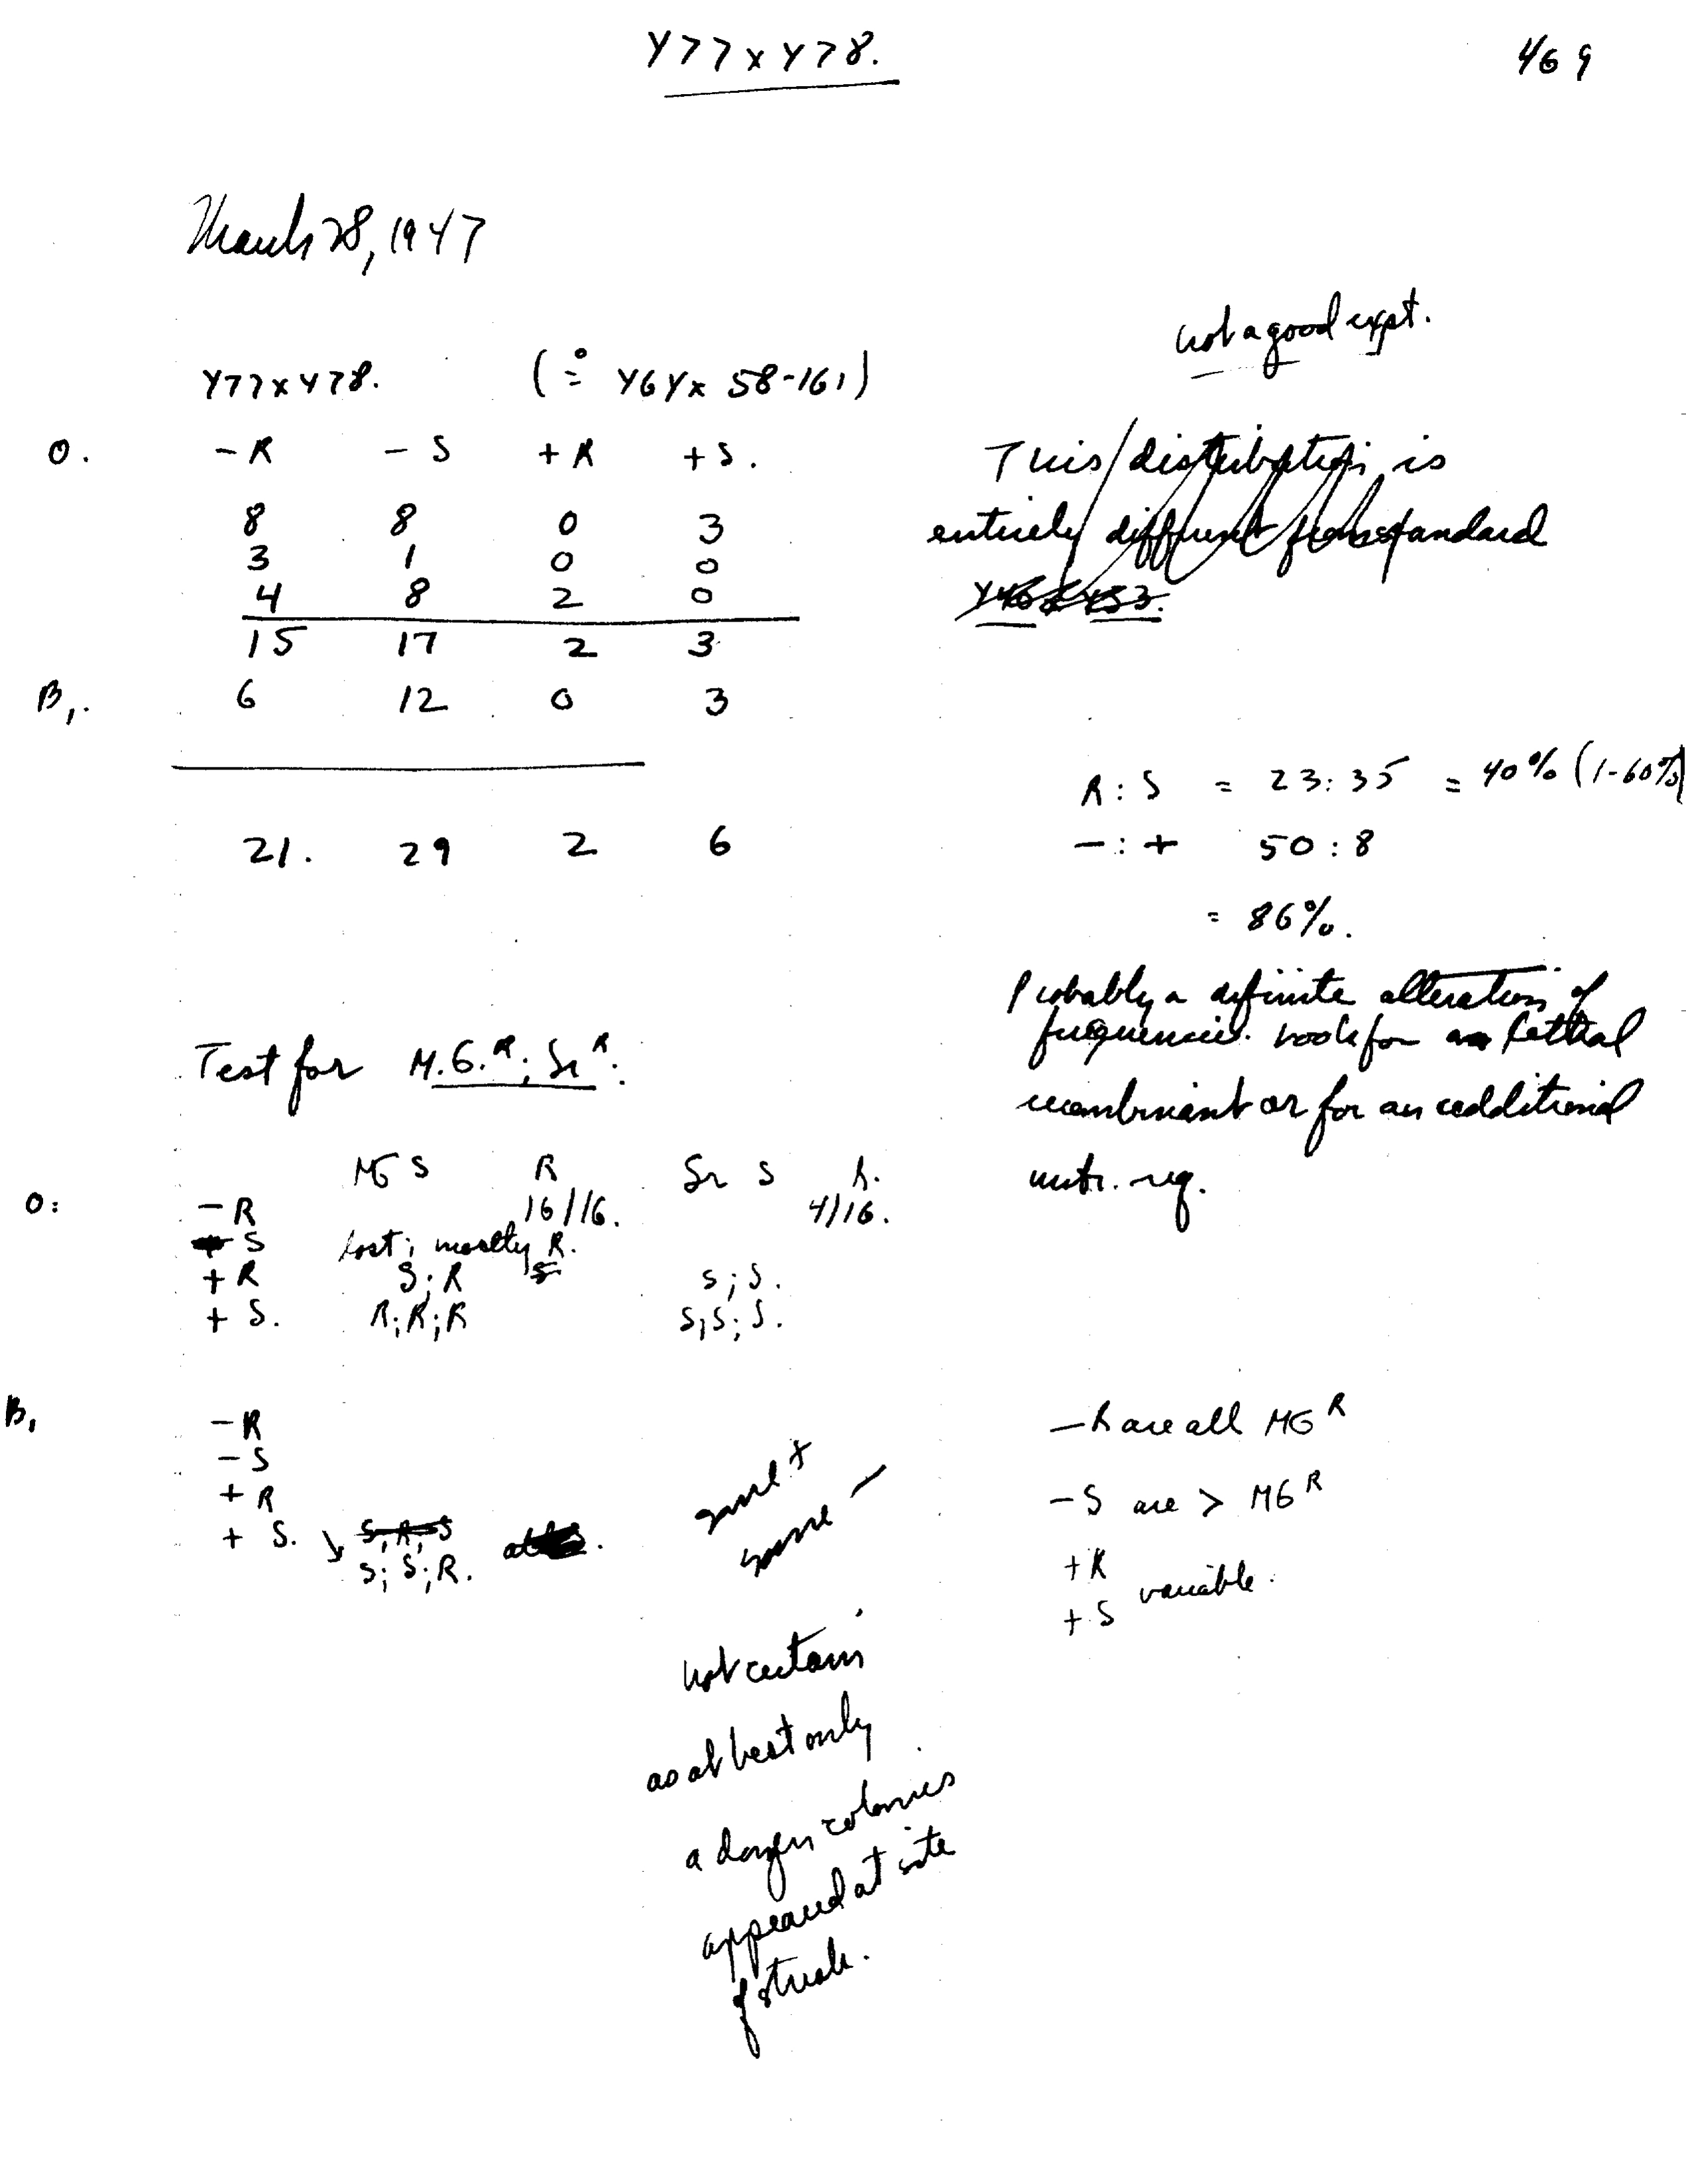 Y77 x Y78.
469
March 28, 1947
not a good expt.
Y77 x Y78. (≐ Y64 x 58-161)
O. -R -S +R +S.
8 8 0 3
3 1 0 0
4 8 2 0
15 17 2 3
B1. 6 12 0 3
21. 29 2 6
This distribution is
entirely different from standard
Y46 x Y53.
R : S = 23:35 = 40% (1-60%)
- : + 50 : 8
= 86%.
Probably a definite alteration of
frequencies. Look for a lethal
recombinant or for an additional
nutr. req.
Test for M.G.R; SrR.
MG S R Sr S R.
O: -R 16/16. 4/16.
- S lost; mostly R.
+ R S; R s; S.
+ S. R; R; R S; S; S.
B1 -R
- S
+ R
+ S. ↘ S, R, S
S; S; R.
some +
some -
not certain
as at best only
a dozen colonies
appeared at site
of streak.
-R are all MG R
-S are > MG R
+R
+S variable.